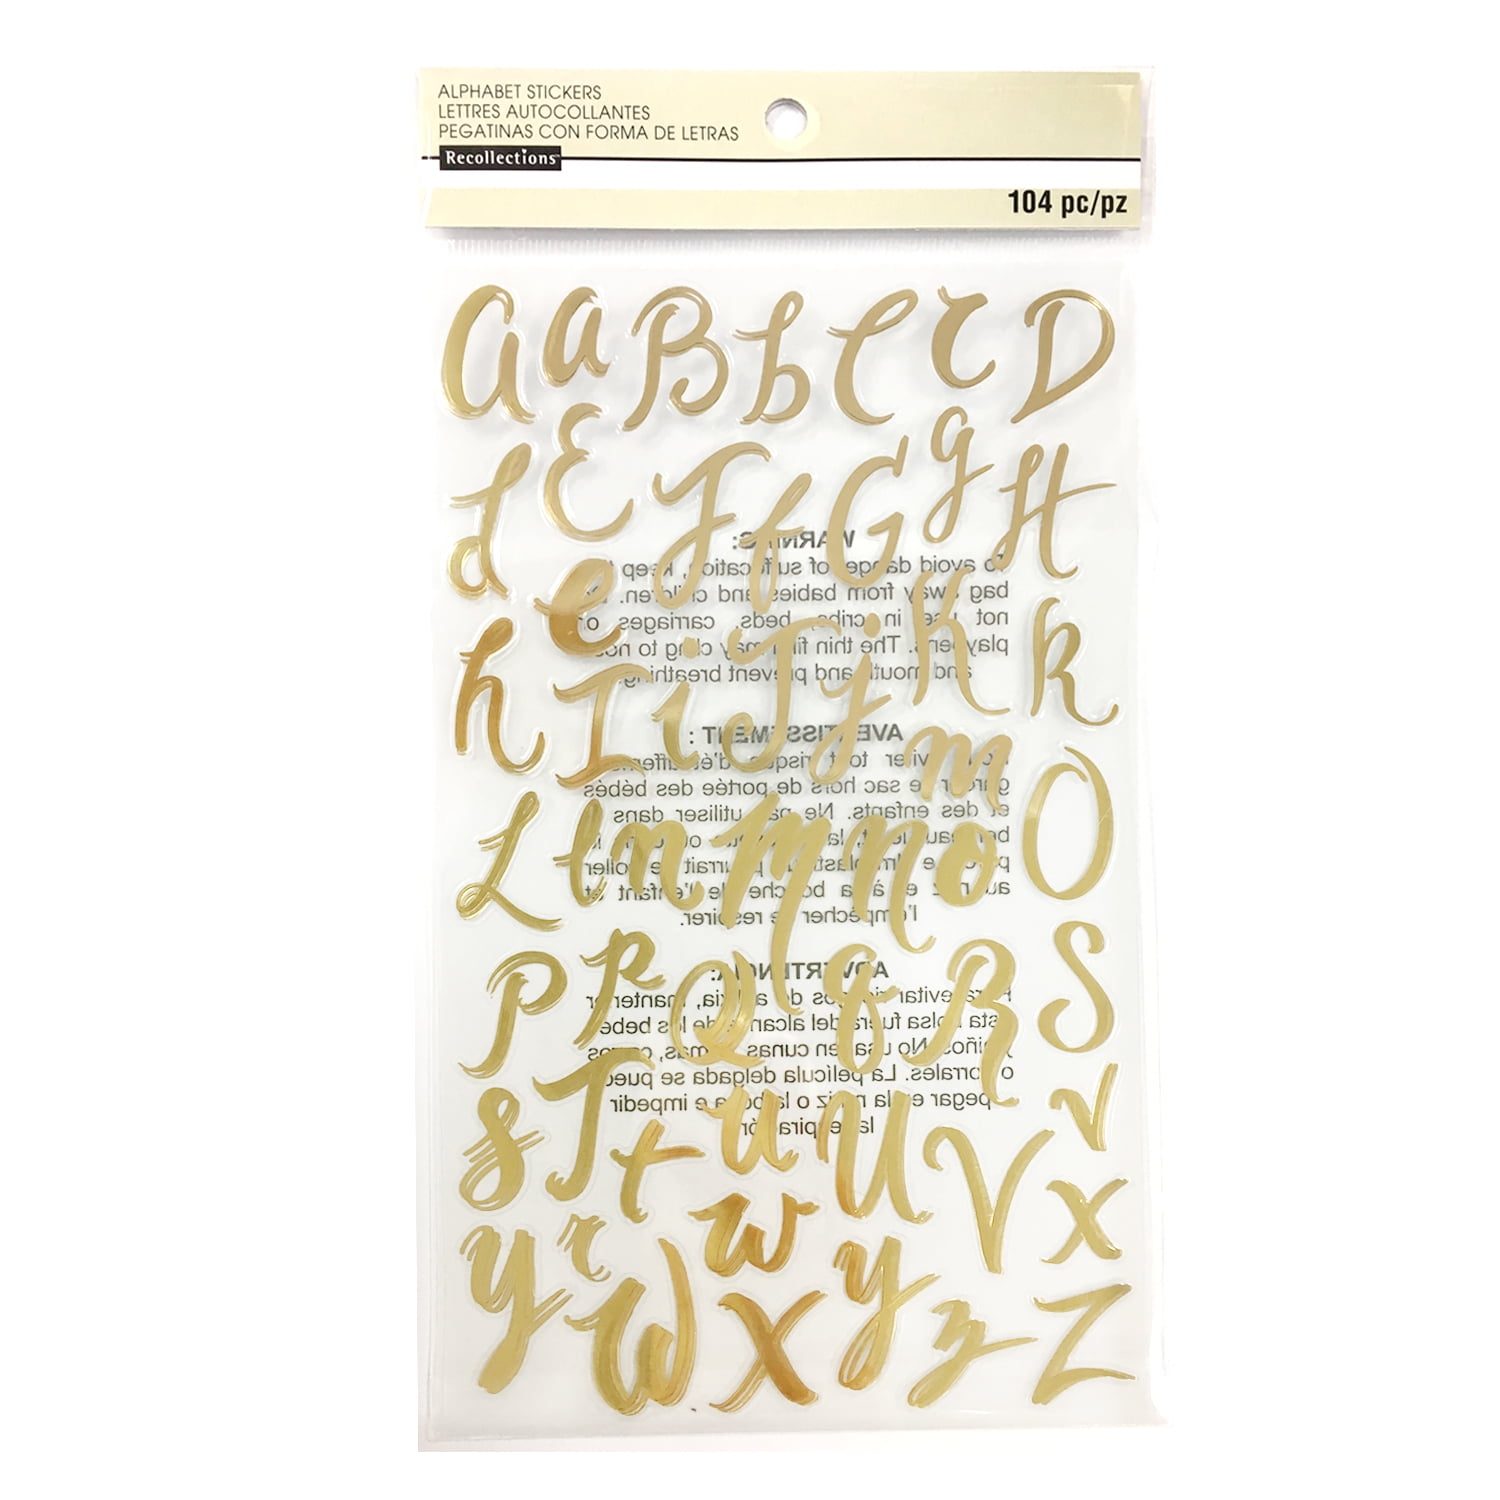 ALPHABET STICKERS
LETTRES AUTOCOLLANTES
PEGATINAS CON FORMA DE LETRAS
Recollections
104 pc/pz
a a B b C c D
d E e F f G g H
h I i J j K k
L l n m M n o m O
P p Q q R S
s T t u U V v
y r w W X y x z Z
WARNING:
To avoid danger of suffocation, keep
bag away from babies and children.
not use in cribs, beds, carriages or
playpens. The thin film may cling to
and mouth and prevent breathing.
AVERTISSEMENT :
éviter tout risque
garder ce sac hors de portée des bébés
et des enfants. Ne pas utiliser dans
pourrait
l'enfant et
l'empêcher de respirer.
ADVERTENCIA:
Para evitar riesgos de asfixia, mantener
esta bolsa fuera del alcance de los bebés
niños. No usar en cunas, camas,
o corrales. La película delgada se puede
pegar en la nariz o la boca e impedir
la respiración